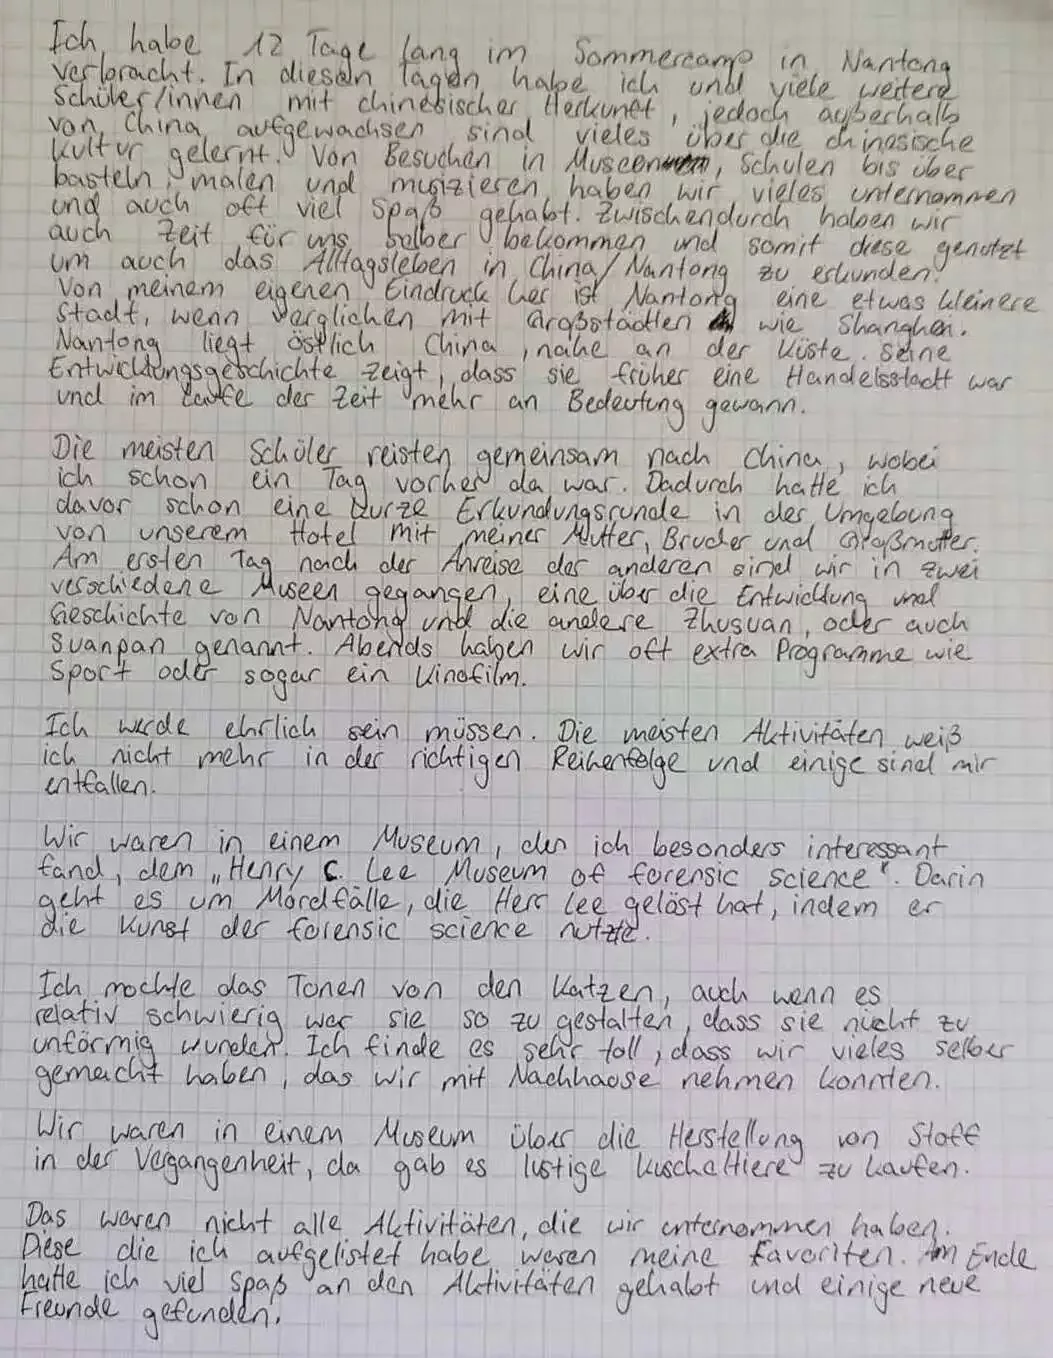 Ich habe 12 Tage lang im Sommercamp in Nantong
verbracht. In diesen Tagen habe ich und viele weitere
Schüler/innen mit chinesischer Herkunft, jedoch außerhalb
von China aufgewachsen sind vieles über die chinesische
Kultur gelernt. Von Besuchen in Museen, Schulen bis über
basteln, malen und musizieren haben wir vieles unternommen
und auch oft viel Spaß gehabt. Zwischendurch haben wir
auch Zeit für uns selber bekommen und somit diese genutzt
um auch das Alltagsleben in China/Nantong zu erkunden.
Von meinem eigenen Eindruck her ist Nantong eine etwas kleinere
Stadt, wenn verglichen mit Großstädten wie Shanghai.
Nantong liegt östlich China, nahe an der Küste. Seine
Entwicklungsgeschichte zeigt, dass sie früher eine Handelsstadt war
und im Laufe der Zeit mehr an Bedeutung gewann.
Die meisten Schüler reisten gemeinsam nach China, wobei
ich schon ein Tag vorher da war. Dadurch hatte ich
davor schon eine kurze Erkundungsrunde in der Umgebung
von unserem Hotel mit meiner Mutter, Bruder und Großmutter.
Am ersten Tag nach der Anreise der anderen sind wir in zwei
verschiedene Museen gegangen, eine über die Entwicklung und
Geschichte von Nantong und die andere Zhusuan, oder auch
Suanpan genannt. Abends haben wir oft extra Programme wie
Sport oder sogar ein Kinofilm.
Ich werde ehrlich sein müssen. Die meisten Aktivitäten weiß
ich nicht mehr in der richtigen Reihenfolge und einige sind mir
entfallen.
Wir waren in einem Museum, den ich besonders interessant
fand, dem „Henry C. Lee Museum of forensic science“. Darin
geht es um Mordfälle, die Herr Lee gelöst hat, indem er
die Kunst der forensic science nutzte.
Ich mochte das Tonen von den Katzen, auch wenn es
relativ schwierig war sie so zu gestalten, dass sie nicht zu
unförmig wurden. Ich finde es sehr toll, dass wir vieles selber
gemacht haben, das wir mit Nachhause nehmen konnten.
Wir waren in einem Museum über die Herstellung von Stoff
in der Vergangenheit, da gab es lustige Kuscheltiere zu kaufen.
Das waren nicht alle Aktivitäten, die wir unternommen haben.
Diese die ich aufgelistet habe waren meine Favoriten. Am Ende
hatte ich viel Spaß an den Aktivitäten gehabt und einige neue
Freunde gefunden.